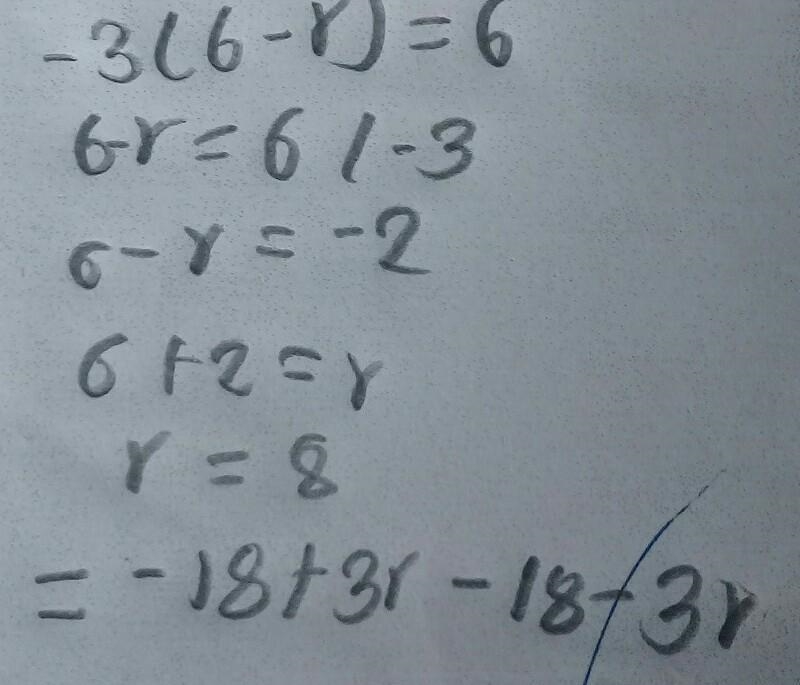 -3(6-r)=6
6-r=6/-3
6-r=-2
6+2=r
r=8
=-18+3r-18-3r